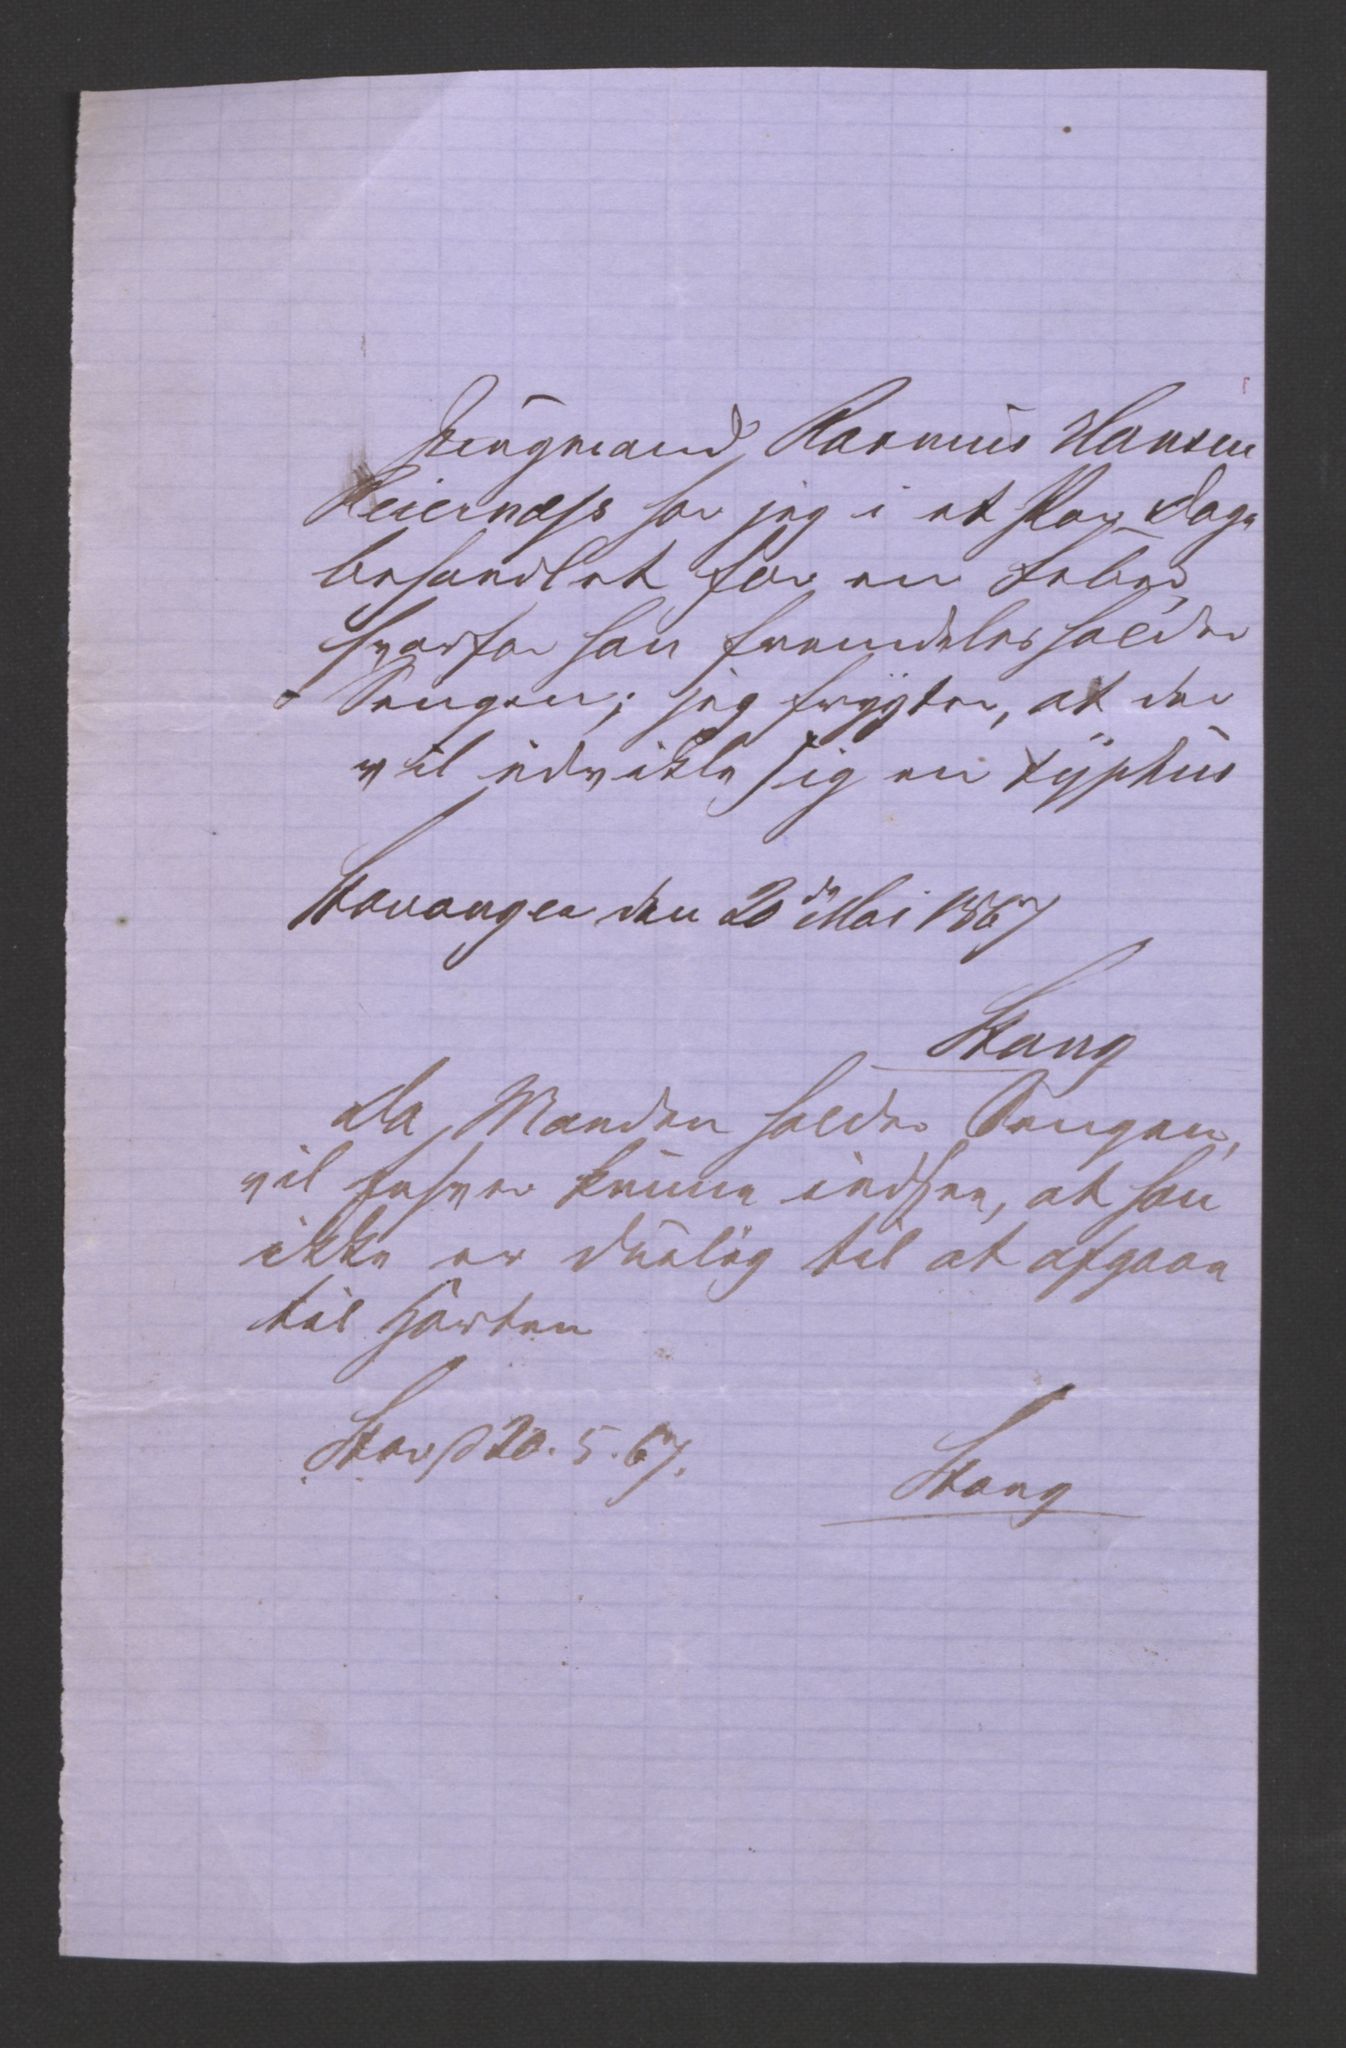 Jungmand Rasmus Hansen
Reiernæss har jeg i et Par Dage
behandlet for en Feber,
hvorfor han fremdeles holder
Sengen; jeg frygter, at der
vil udvikle sig en typhus
Stavanger den 20de Mai 1867
Stang
Da Manden holder Sengen,
vil Enhver kunne indsee, at han
ikke er duelig til at afgaae
til Horten
Stav 20.5.67.
Stang